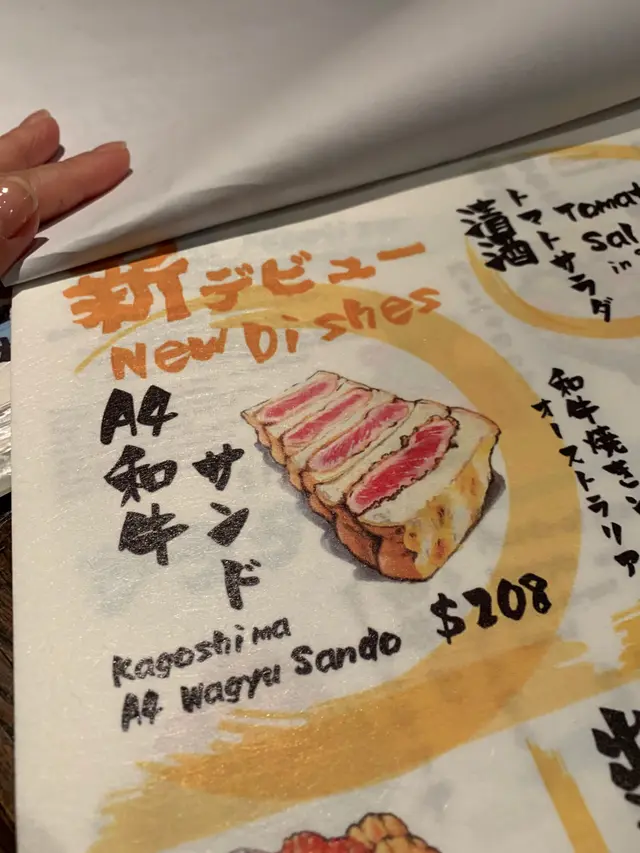 新デビュー
New Dishes
A4和牛
サンド
Kagoshima
A4 Wagyu Sando
$208
漬酒
トマトサラダ
in
和牛焼き
オーストラリア